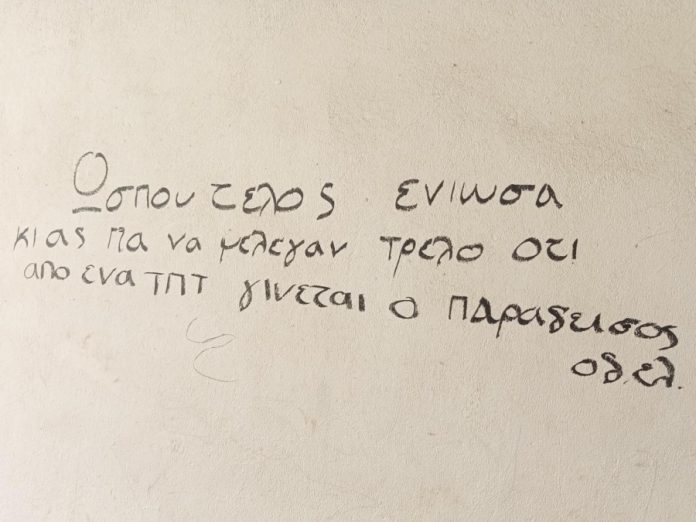 Ωσπου τελος ενιωσα
κι ας πα να μελεγαν τρελο οτι
απο ενα ΤΠΤ γινεται ο παραδεισος
οδ.ελ.